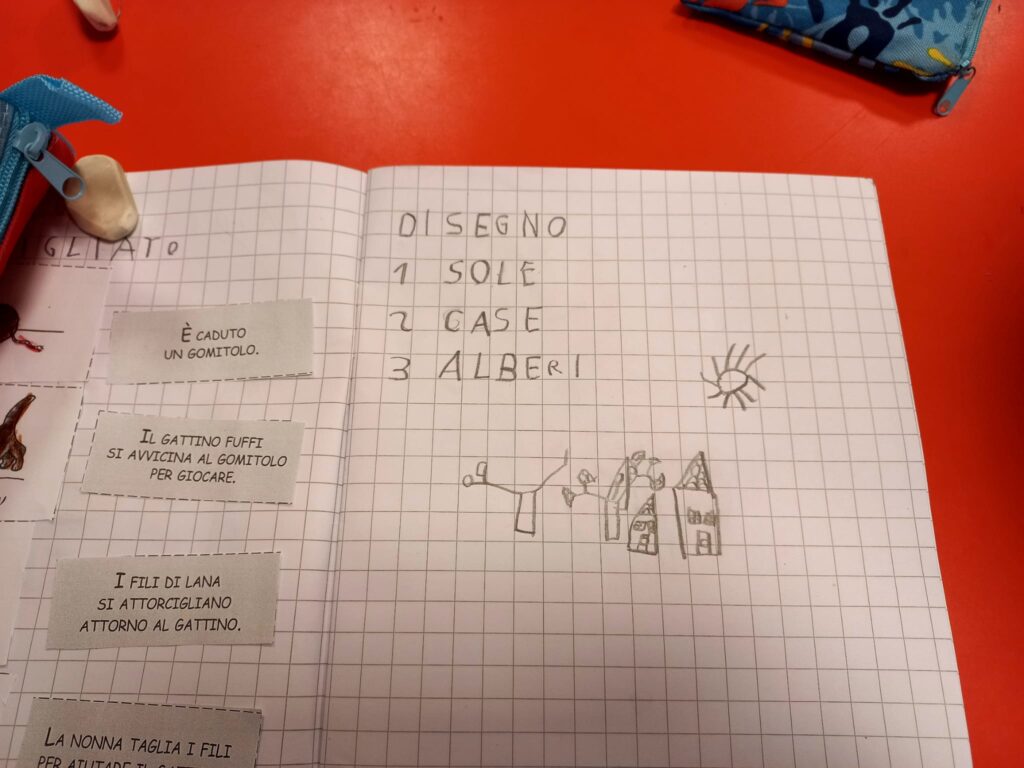 IGLIATO
È CADUTO
UN GOMITOLO.
IL GATTINO FUFFI
SI AVVICINA AL GOMITOLO
PER GIOCARE.
I FILI DI LANA
SI ATTORCIGLIANO
ATTORNO AL GATTINO.
LA NONNA TAGLIA I FILI
PER AIUTARE IL
DISEGNO
1 SOLE
2 CASE
3 ALBERI